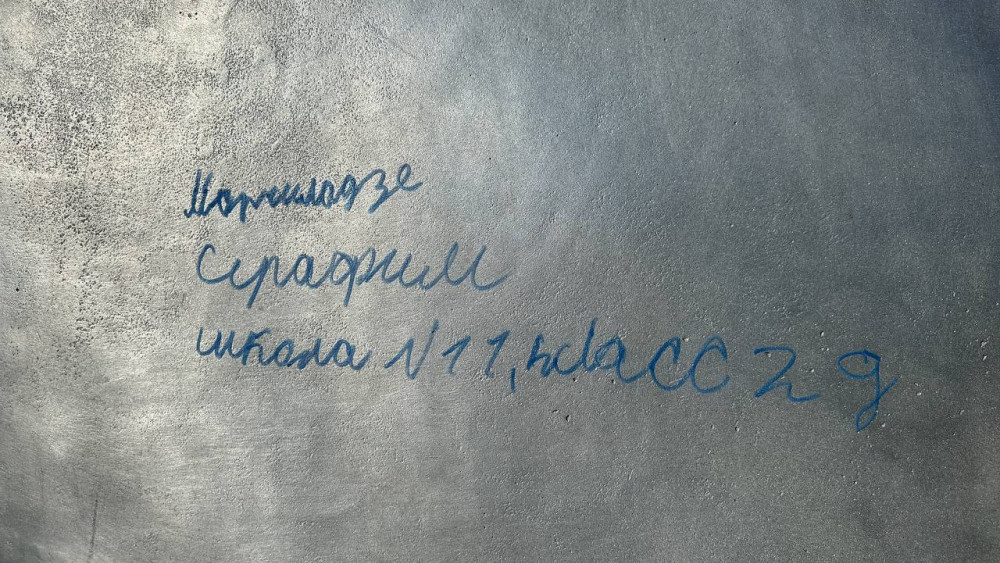 Моршиладзе
Серафим
школа N 11, класс 2 д